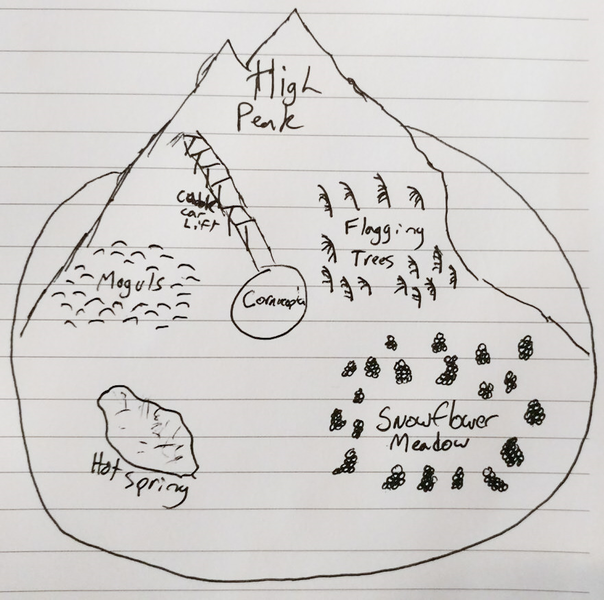 High
Peak
Cable
car
Lift
Flagging
Trees
Moguls
Cornucopia
Snowflower
Meadow
Hot Spring